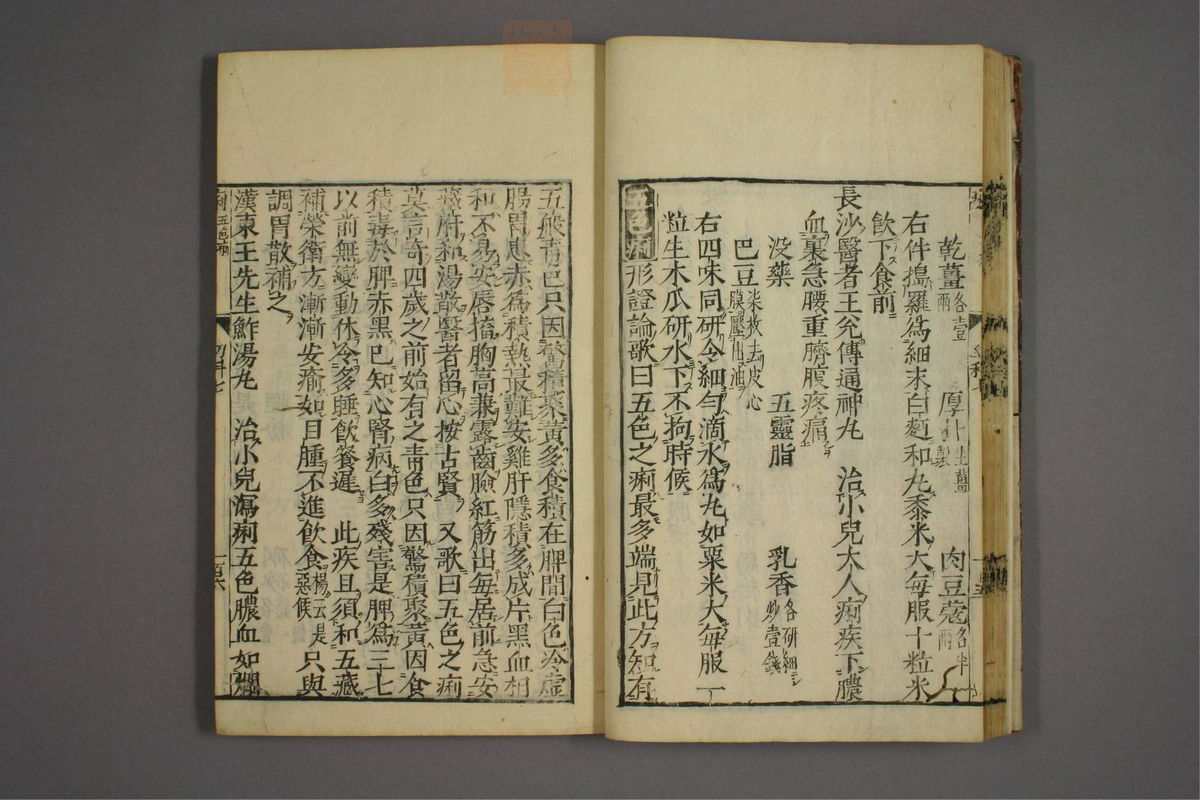 乾薑各壹兩 厚朴生薑製 肉豆蔻各半兩
右件搗羅爲細末白麪和丸黍米大每服十粒米
飲下食前
長沙醫者王兊傳通神丸 治小兒大人痢疾下膿
血裏急腰重臍腹疼痛
没藥 五靈脂 乳香各研細炒壹錢
巴豆柒枚去皮心膜壓出油
右四味同研令細勻滴水爲丸如粟米大每服一
粒生木瓜研水下不拘時候
五色痢形證論歌曰五色之痢最多端見此方知有
五般青色只因驚積聚黃多食積在脾間白色冷虛
腸胃患赤爲積熱最難安雞肝隱積多成片黑血相
和不易安唇搐胸高兼露齒臉紅筋出每居前急安
藏府和湯散醫者留心按古賢 又歌曰五色之痢
莫言奇四歲之前始有之青色只因驚積聚黃因食
積毒於脾赤黑巴知心腎病白多殘害是脾爲三十七
以前無變動休冷多睡飲餐遲 此疾且須和五藏
補榮衛方漸漸安瘉如目腫不進飲食楊云是惡候只與
調胃散補之
漢東王先生鮓湯丸 治小兒瀉痢五色膿血如爛
痢 五色痢